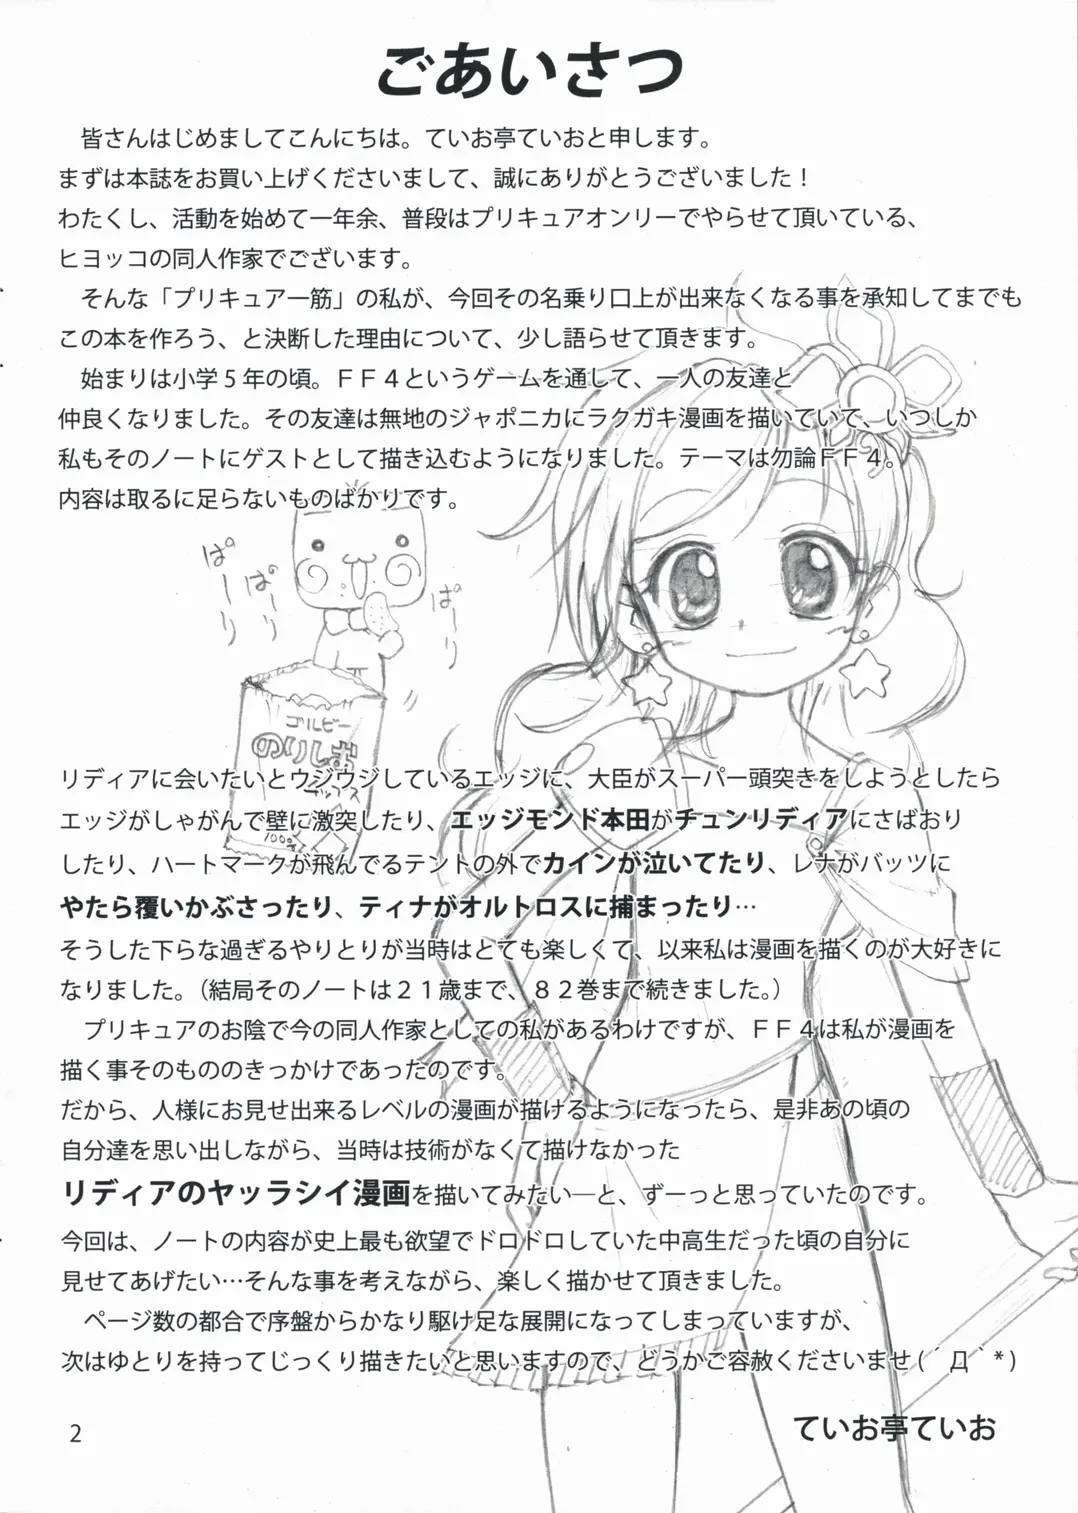 ごあいさつ
皆さんはじめましてこんにちは。ていお亭ていおと申します。
まずは本誌をお買い上げくださいまして、誠にありがとうございました！
わたくし、活動を始めて一年余、普段はプリキュアオンリーでやらせて頂いている、
ヒヨッコの同人作家でございます。
そんな「プリキュア一筋」の私が、今回その名乗り口上が出来なくなる事を承知してまでも
この本を作ろう、と決断した理由について、少し語らせて頂きます。
始まりは小学５年の頃。ＦＦ４というゲームを通して、一人の友達と
仲良くなりました。その友達は無地のジャポニカにラクガキ漫画を描いていて、いつしか
私もそのノートにゲストとして描き込むようになりました。テーマは勿論ＦＦ４。
内容は取るに足らないものばかりです。
ぱーり
ぱーり
ぱーり
ゴルビー
のりしお
チップス
100g
リディアに会いたいとウジウジしているエッジに、大臣がスーパー頭突きをしようとしたら
エッジがしゃがんで壁に激突したり、エッジモンド本田がチュンリディアにさばおり
したり、ハートマークが飛んでるテントの外でカインが泣いてたり、レナがバッツに
やたら覆いかぶさったり、ティナがオルトロスに捕まったり…
そうした下らな過ぎるやりとりが当時はとても楽しくて、以来私は漫画を描くのが大好きに
なりました。（結局そのノートは２１歳まで、８２巻まで続きました。）
プリキュアのお陰で今の同人作家としての私があるわけですが、ＦＦ４は私が漫画を
描く事そのもののきっかけであったのです。
だから、人様にお見せ出来るレベルの漫画が描けるようになったら、是非あの頃の
自分達を思い出しながら、当時は技術がなくて描けなかった
リディアのヤッラシイ漫画を描いてみたい―と、ずーっと思っていたのです。
今回は、ノートの内容が史上最も欲望でドロドロしていた中高生だった頃の自分に
見せてあげたい…そんな事を考えながら、楽しく描かせて頂きました。
ページ数の都合で序盤からかなり駆け足な展開になってしまっていますが、
次はゆとりを持ってじっくり描きたいと思いますので、どうかご容赦くださいませ(´Д｀*)
ていお亭ていお
2